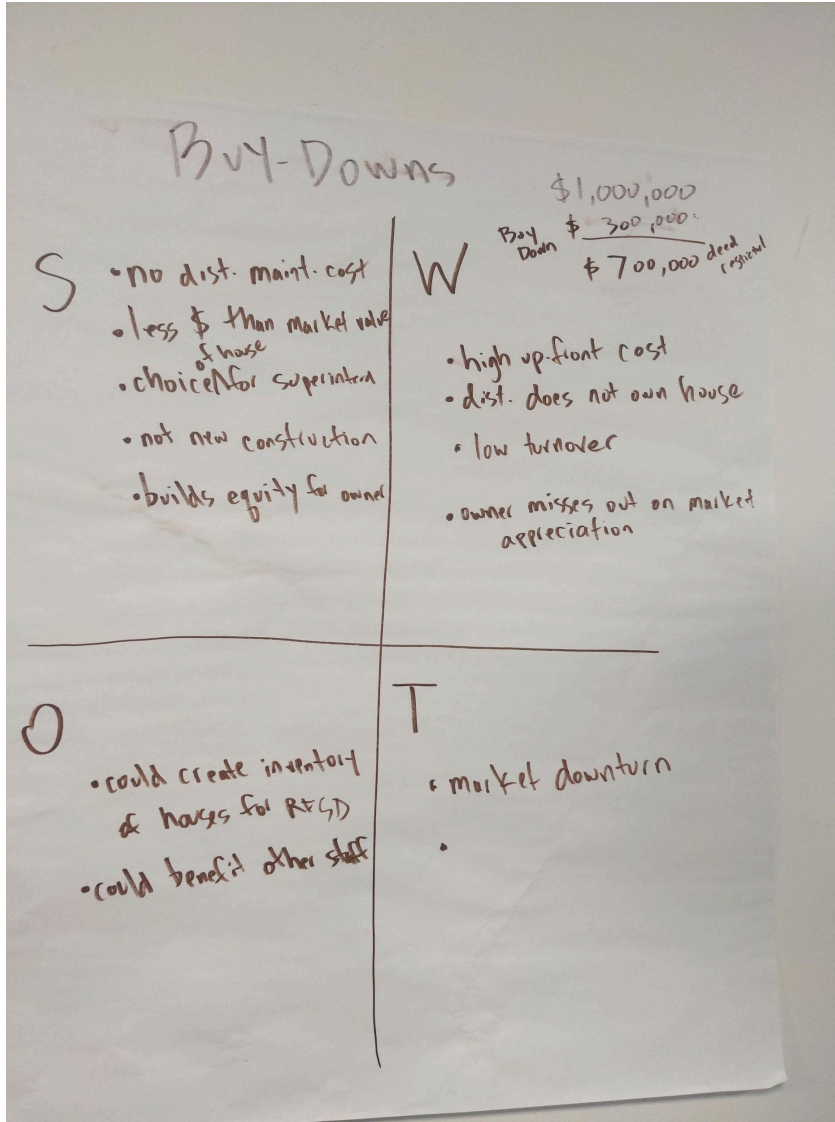 Buy-Downs
$1,000,000
Buy Down $ 300,000
$700,000 deed
S
• no dist. maint. cost
• less $ than market value
• choice of house for superintend
• not new construction
• builds equity for owner
W
• high up-front cost
• dist. does not own house
• low turnover
• owner misses out on market
appreciation
O
• could create inventory
of houses for RFSD
• could benefit other staff
T
• market downturn
•